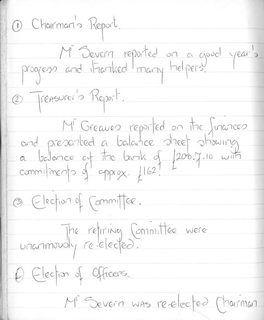 ① Chairman's Report.
Mr Severn reported on a good year's
progress and thanked many helpers.
② Treasurer's Report.
Mr Greaves reported on the finances
and presented a balance sheet showing
a balance at the bank of £206.7.10 with
commitments of approx. £162.
③ Election of Committee.
The retiring Committee were
unanimously re-elected.
④ Election of Officers.
Mr Severn was re-elected Chairman